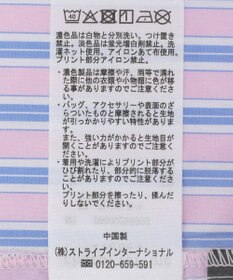 濃色品は白物と分別洗い。つけ置き
禁止。淡色品は蛍光増白剤禁止。洗
濯ネット使用。アイロンあて布使用。
プリント部分アイロン禁止。
・濃色製品は摩擦や汗、雨等で濡
れた際に他の衣類や小物類に色が移
る事がありますのでご注意ください。
・バッグ、アクセサリーや表面のざ
らついたものと摩擦されると生地が
引っかかりやすい特性があります。
また、強い力がかかると生地目が開
きますのでご注意ください。
・着用や洗濯によりプリント部分が
ひび割れたり、部分的に脱落するこ
とがありますのでご注意ください。
プリント部分を擦ったり、揉んだ
りしないでください。
中国製
(株)ストライプインターナショナル
0120-659-591